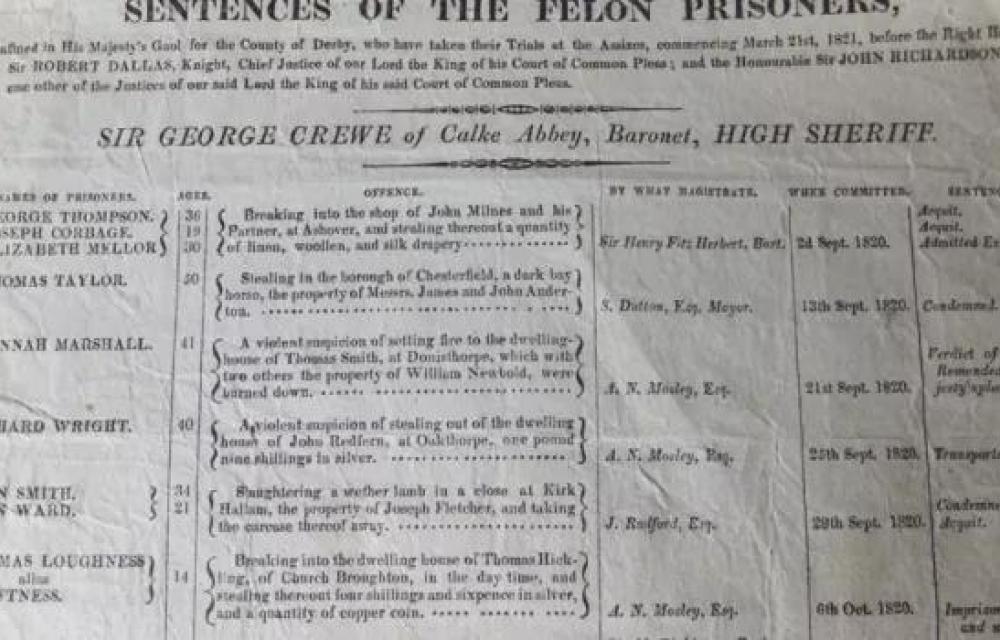 SENTENCES OF THE FELON PRISONERS,
nfined in His Majesty's Gaol for the County of Derby, who have taken their Trials at the Assizes, commencing March 21st, 1821, before the Right H
Sir ROBERT DALLAS, Knight, Chief Justice of our Lord the King of his Court of Common Pleas; and the Honourable Sir JOHN RICHARDSON
one other of the Justices of our said Lord the King of his said Court of Common Pleas.
SIR GEORGE CREWE of Calke Abbey, Baronet, HIGH SHERIFF.
AMES OF PRISONERS. AGES. OFFENCE. BY WHAT MAGISTRATE. WHEN COMMITTED. SENTEN
EORGE THOMPSON. 36 Breaking into the shop of John Milnes and his Acquit.
SEPH CORBAGE. 19 Partner, at Ashover, and stealing thereout a quantity Acquit.
LIZABETH MELLOR 30 of linen, woollen, and silk drapery Sir Henry Fitz Herbert, Bart. 2d Sept. 1820. Admitted Ev
OMAS TAYLOR. 50 Stealing in the borough of Chesterfield, a dark bay
horse, the property of Messrs. James and John Ander-
ton. S. Dutton, Esq. Mayor. 13th Sept. 1820. Condemned.
NNAH MARSHALL. 41 A violent suspicion of setting fire to the dwelling-
house of Thomas Smith, at Donisthorpe, which with Verdict of
two others the property of William Newbold, were Remanded
burned down. A. N. Mosley, Esq. 21st Sept. 1820.
HARD WRIGHT. 40 A violent suspicion of stealing out of the dwelling
house of John Redfern, at Oakthorpe, one pound
nine shillings in silver. A. N. Mosley, Esq. 25th Sept. 1820. Transporte
N SMITH. 34 Slaughtering a wether lamb in a close at Kirk
S WARD. 21 Hallam, the property of Joseph Fletcher, and taking Condemne
the carcase thereof away. J. Radford, Esq. 29th Sept. 1820. Acquit.
MAS LOUGHNESS Breaking into the dwelling house of Thomas Hick-
alias 14 ling, of Church Broughton, in the day time, and
TNESS. stealing thereout four shillings and sixpence in silver,
and a quantity of copper coin. A. N. Mosley, Esq. 6th Oct. 1820. Impriso
and w